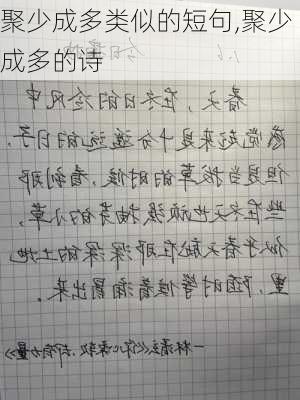 聚少成多类似的短句,聚少
成多的诗
春天，在冬日的冷风中
感觉起来是十分遥远的日子。
但是当拔草的时候，看到那
些在冬天也顽强抽芽的小草，
似乎春天就在那深深的土地
里，随时等候着涌冒出来。
—林清玄《你心柔软，却有力量》